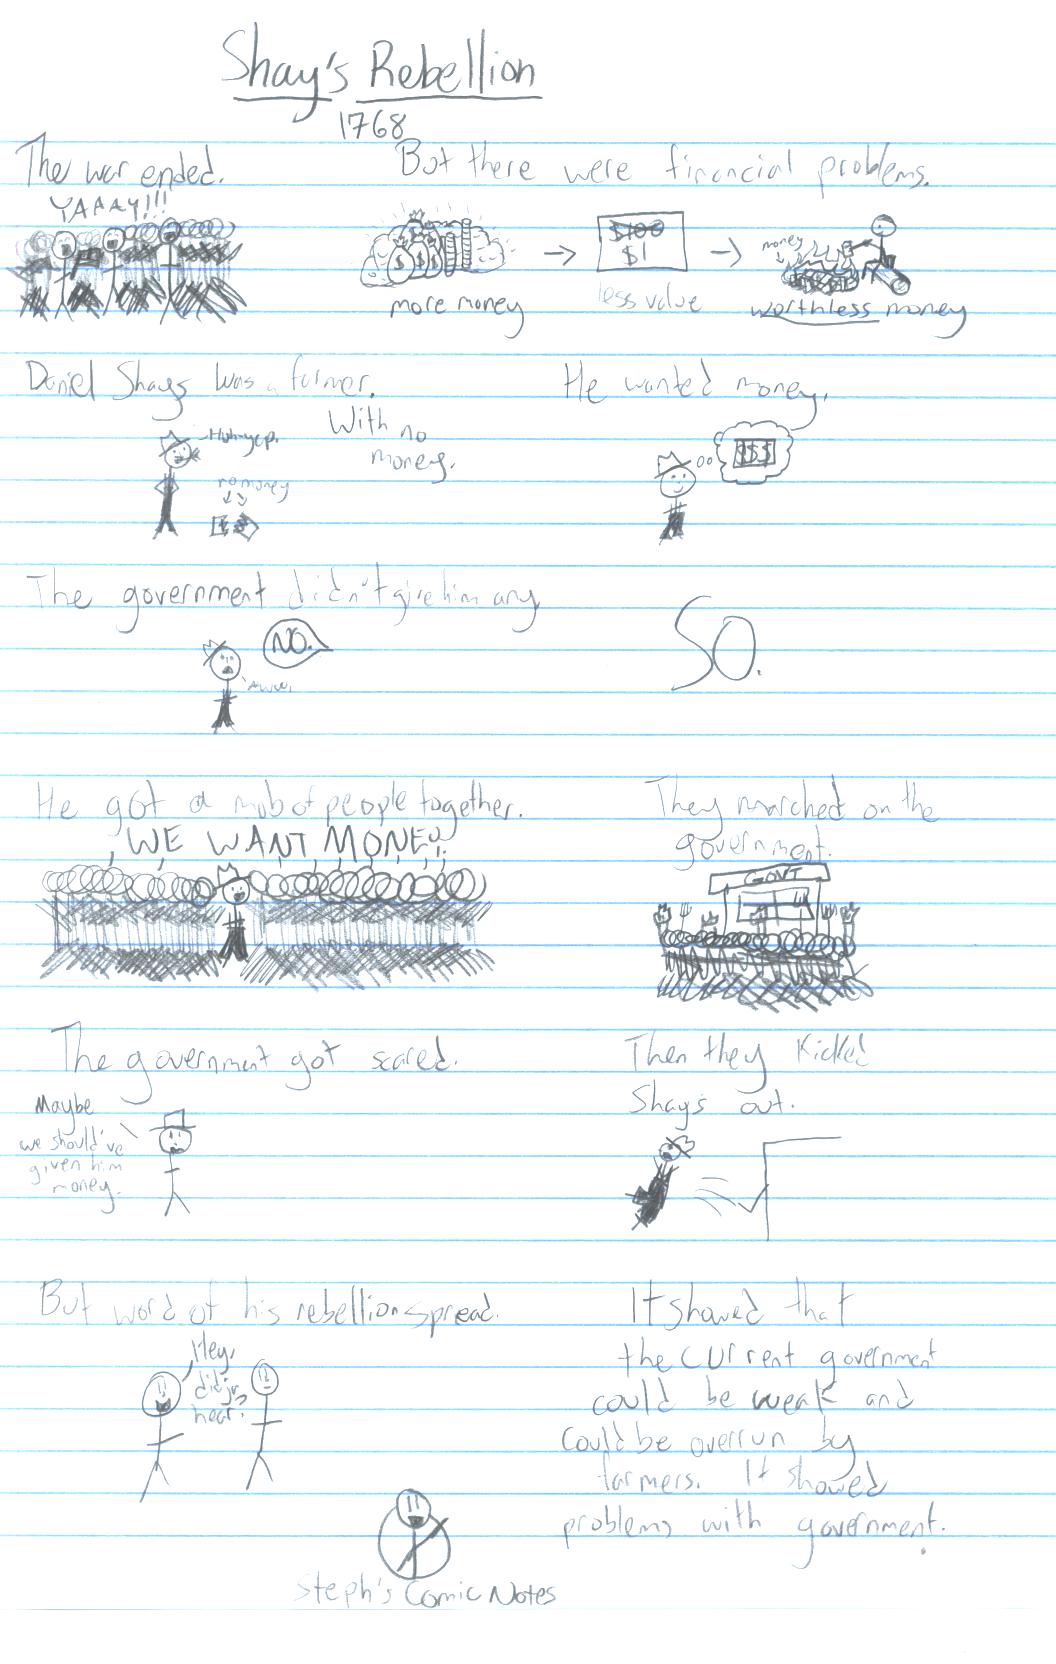 Shay's Rebellion
1768
The war ended.
YAAAY!!!
But there were financial problems.
more money
$100
$1
less value
money
worthless money
Daniel Shays was a farmer.
Huh-yep.
With no
money.
no money
He wanted money.
$$$
The government didn't give him any
NO.
Aww.
SO.
He got a mob of people together.
WE WANT MONEY!
They marched on the
government.
GOVT
The government got scared.
Maybe
we should've
given him
money.
Then they kicked
Shays out.
But word of his rebellion spread.
Hey,
did ju
hear?
It showed that
the current government
could be weak and
could be overrun by
farmers. It showed
problems with government.
Steph's Comic Notes